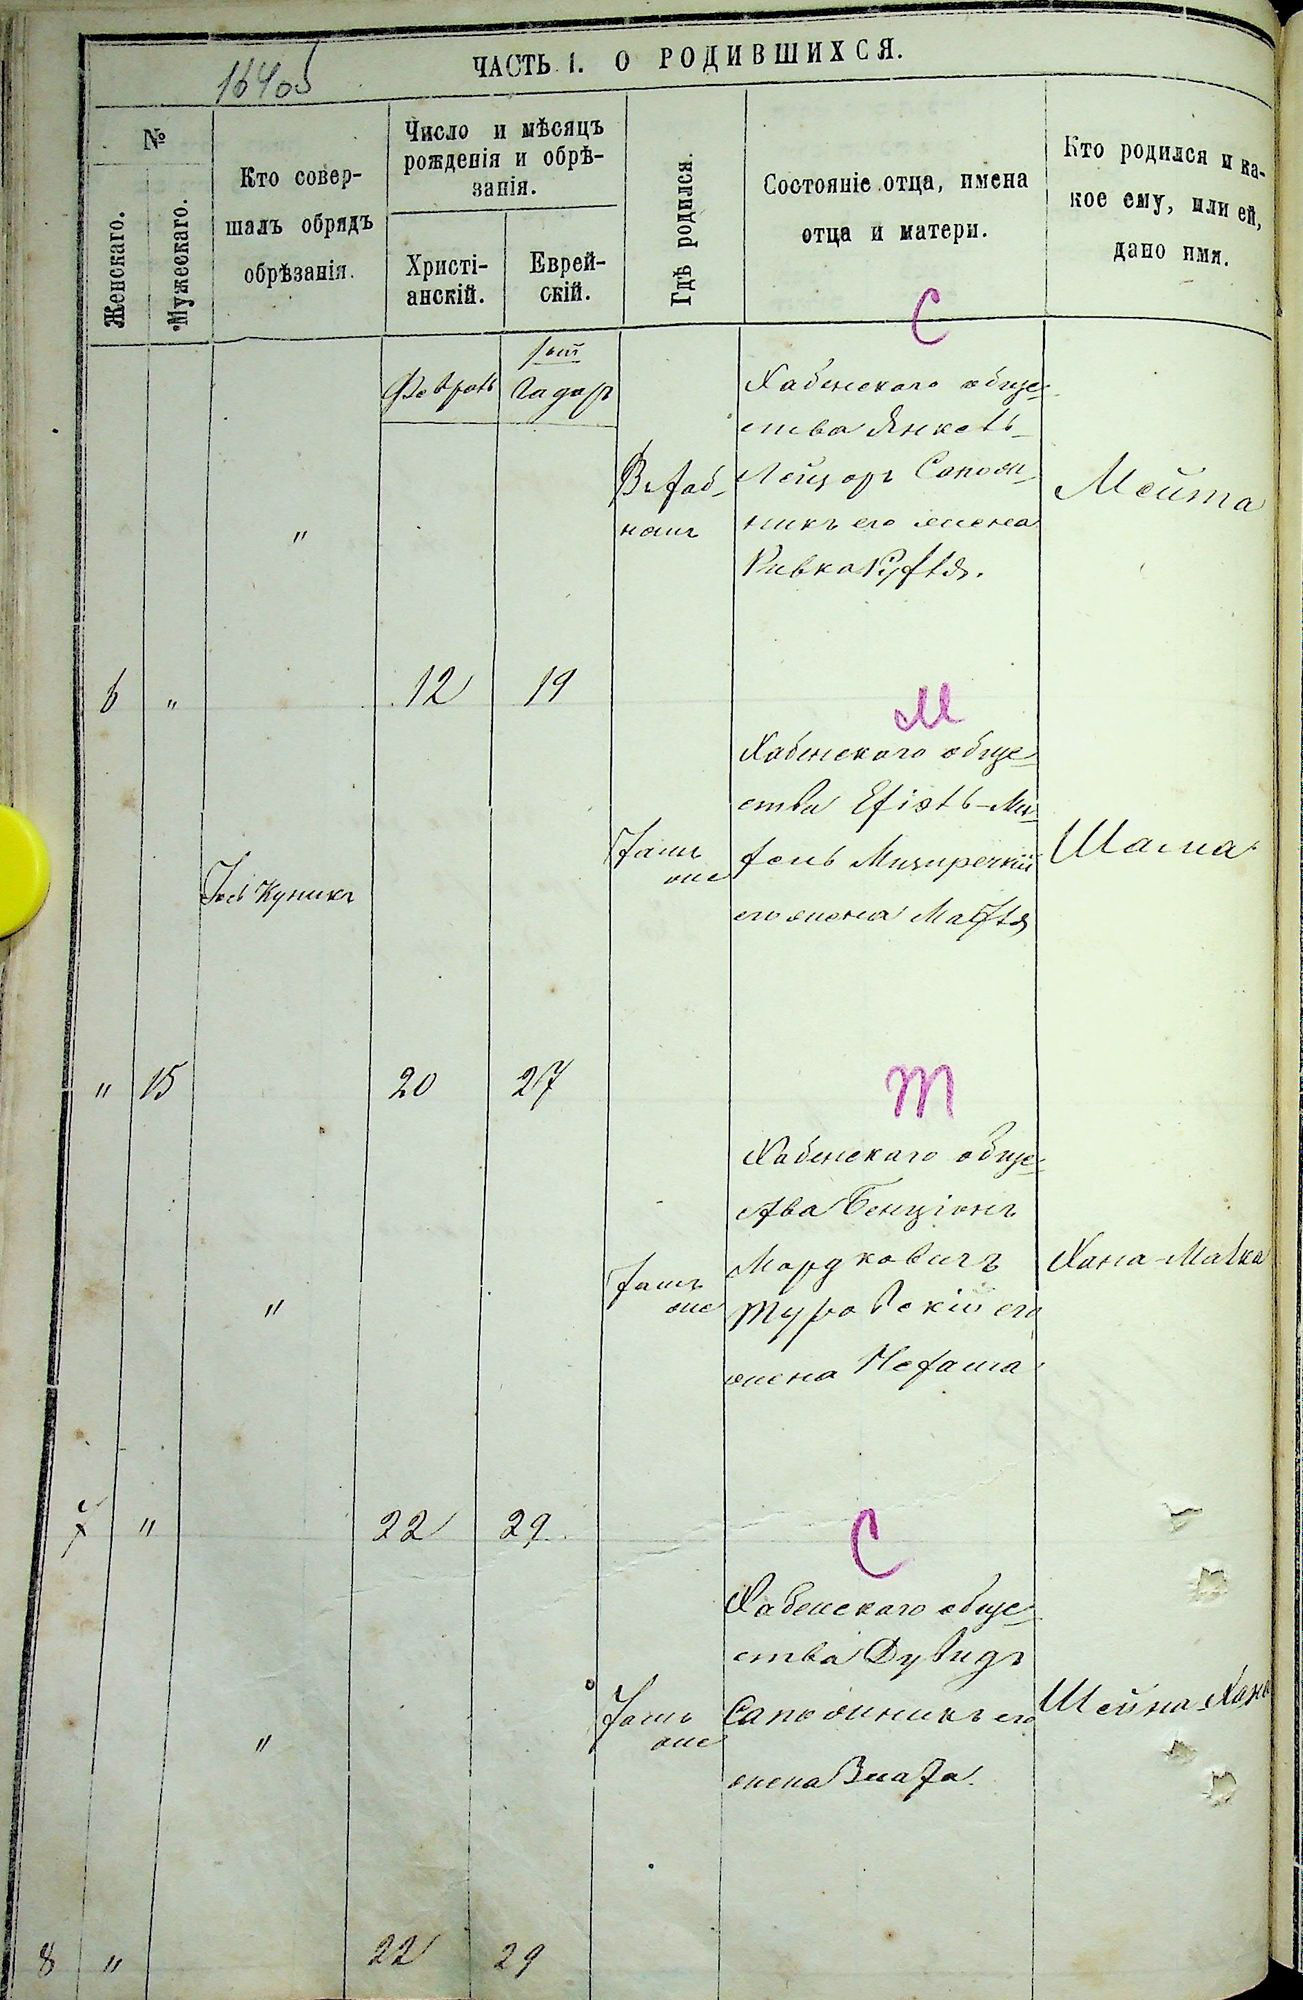 ЧАСТЬ I. О РОДИВШИХСЯ.
№
Женскаго.
Мужескаго.
Кто совер-
шалъ обрядъ
обрѣзанія.
Число и мѣсяцъ
рожденія и обрѣ-
занія.
Христі-
анскій.
Еврей-
скій.
Гдѣ родился.
Состояніе отца, имена
отца и матери.
Кто родился и ка-
кое ему, или ей,
дано имя.
С
Феврал
Гадаръ
Хабенскаго обще-
ства Янкель
Лейзоръ Сапож-
никъ его жена
Ривка
Мейта
"
6 " 12 19
М
Хабенскаго обще-
ства
его жена
Шама
Тамъ
же
Іось Куникъ
" 15 20 27
Т
Хабенскаго обще-
ства Бенціонъ
Мордковичъ
Туровскій его
жена
Хана-Малка
Тамъ
же
"
7 " 22 29
С
Хабенскаго обще-
ства Дувидъ
Сапожникъ его
жена Злата.
Шейна-Хана
Тамъ
же
"
8 " 22 29